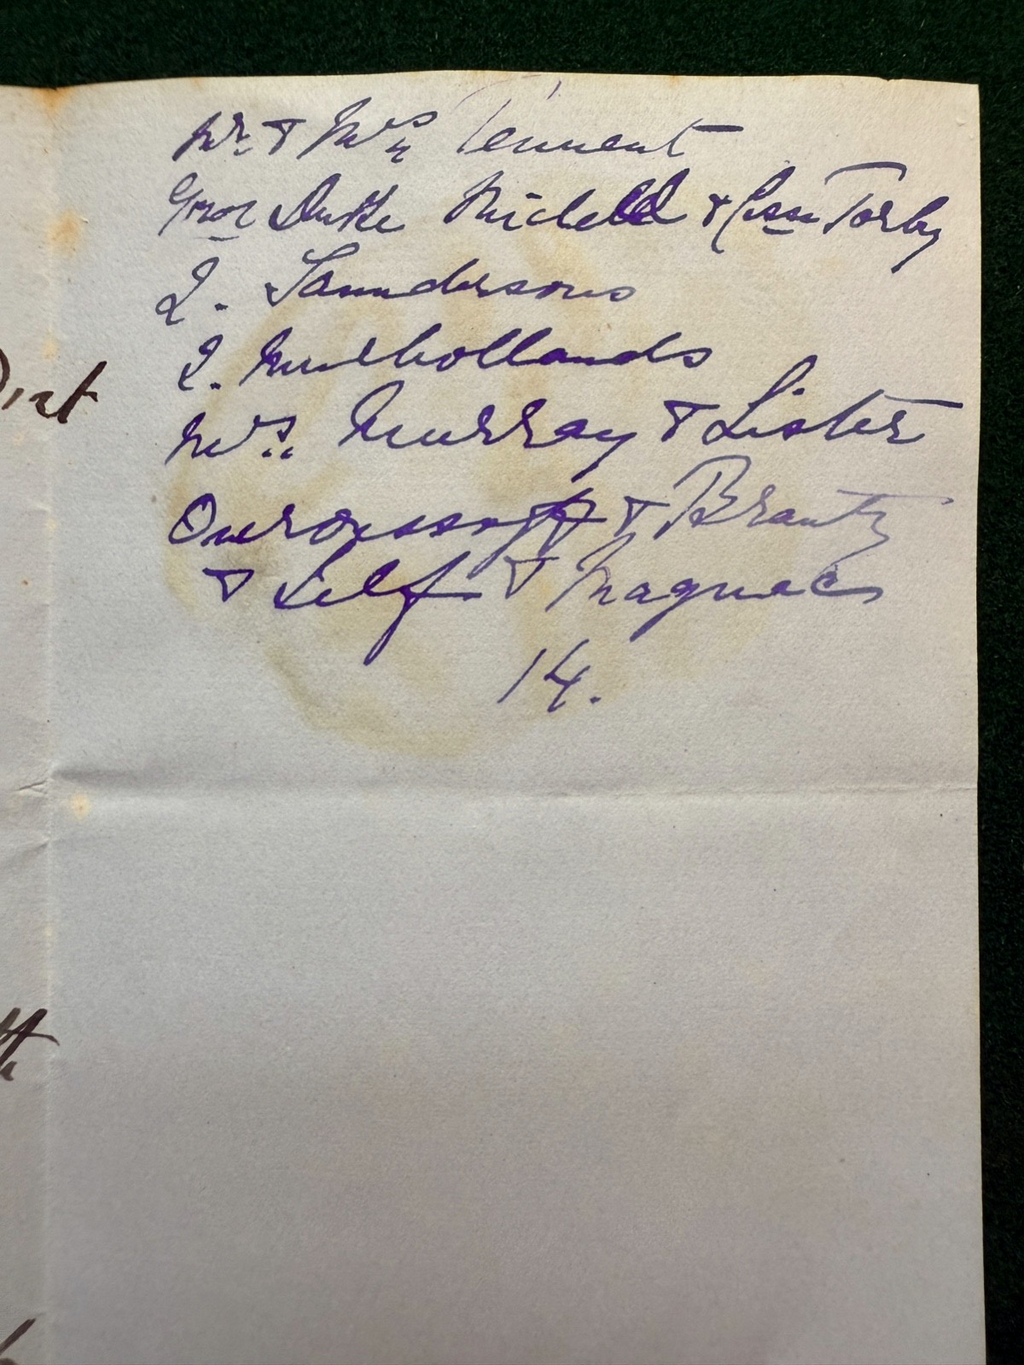 Mr. & Mrs Tennant
Grd Duke Michell & Css Torby
2. Saundersons
2. Mulhollands
Mrs. Murray & Lister
Ouroussoff & Brantz
& Self & Magniac
14.